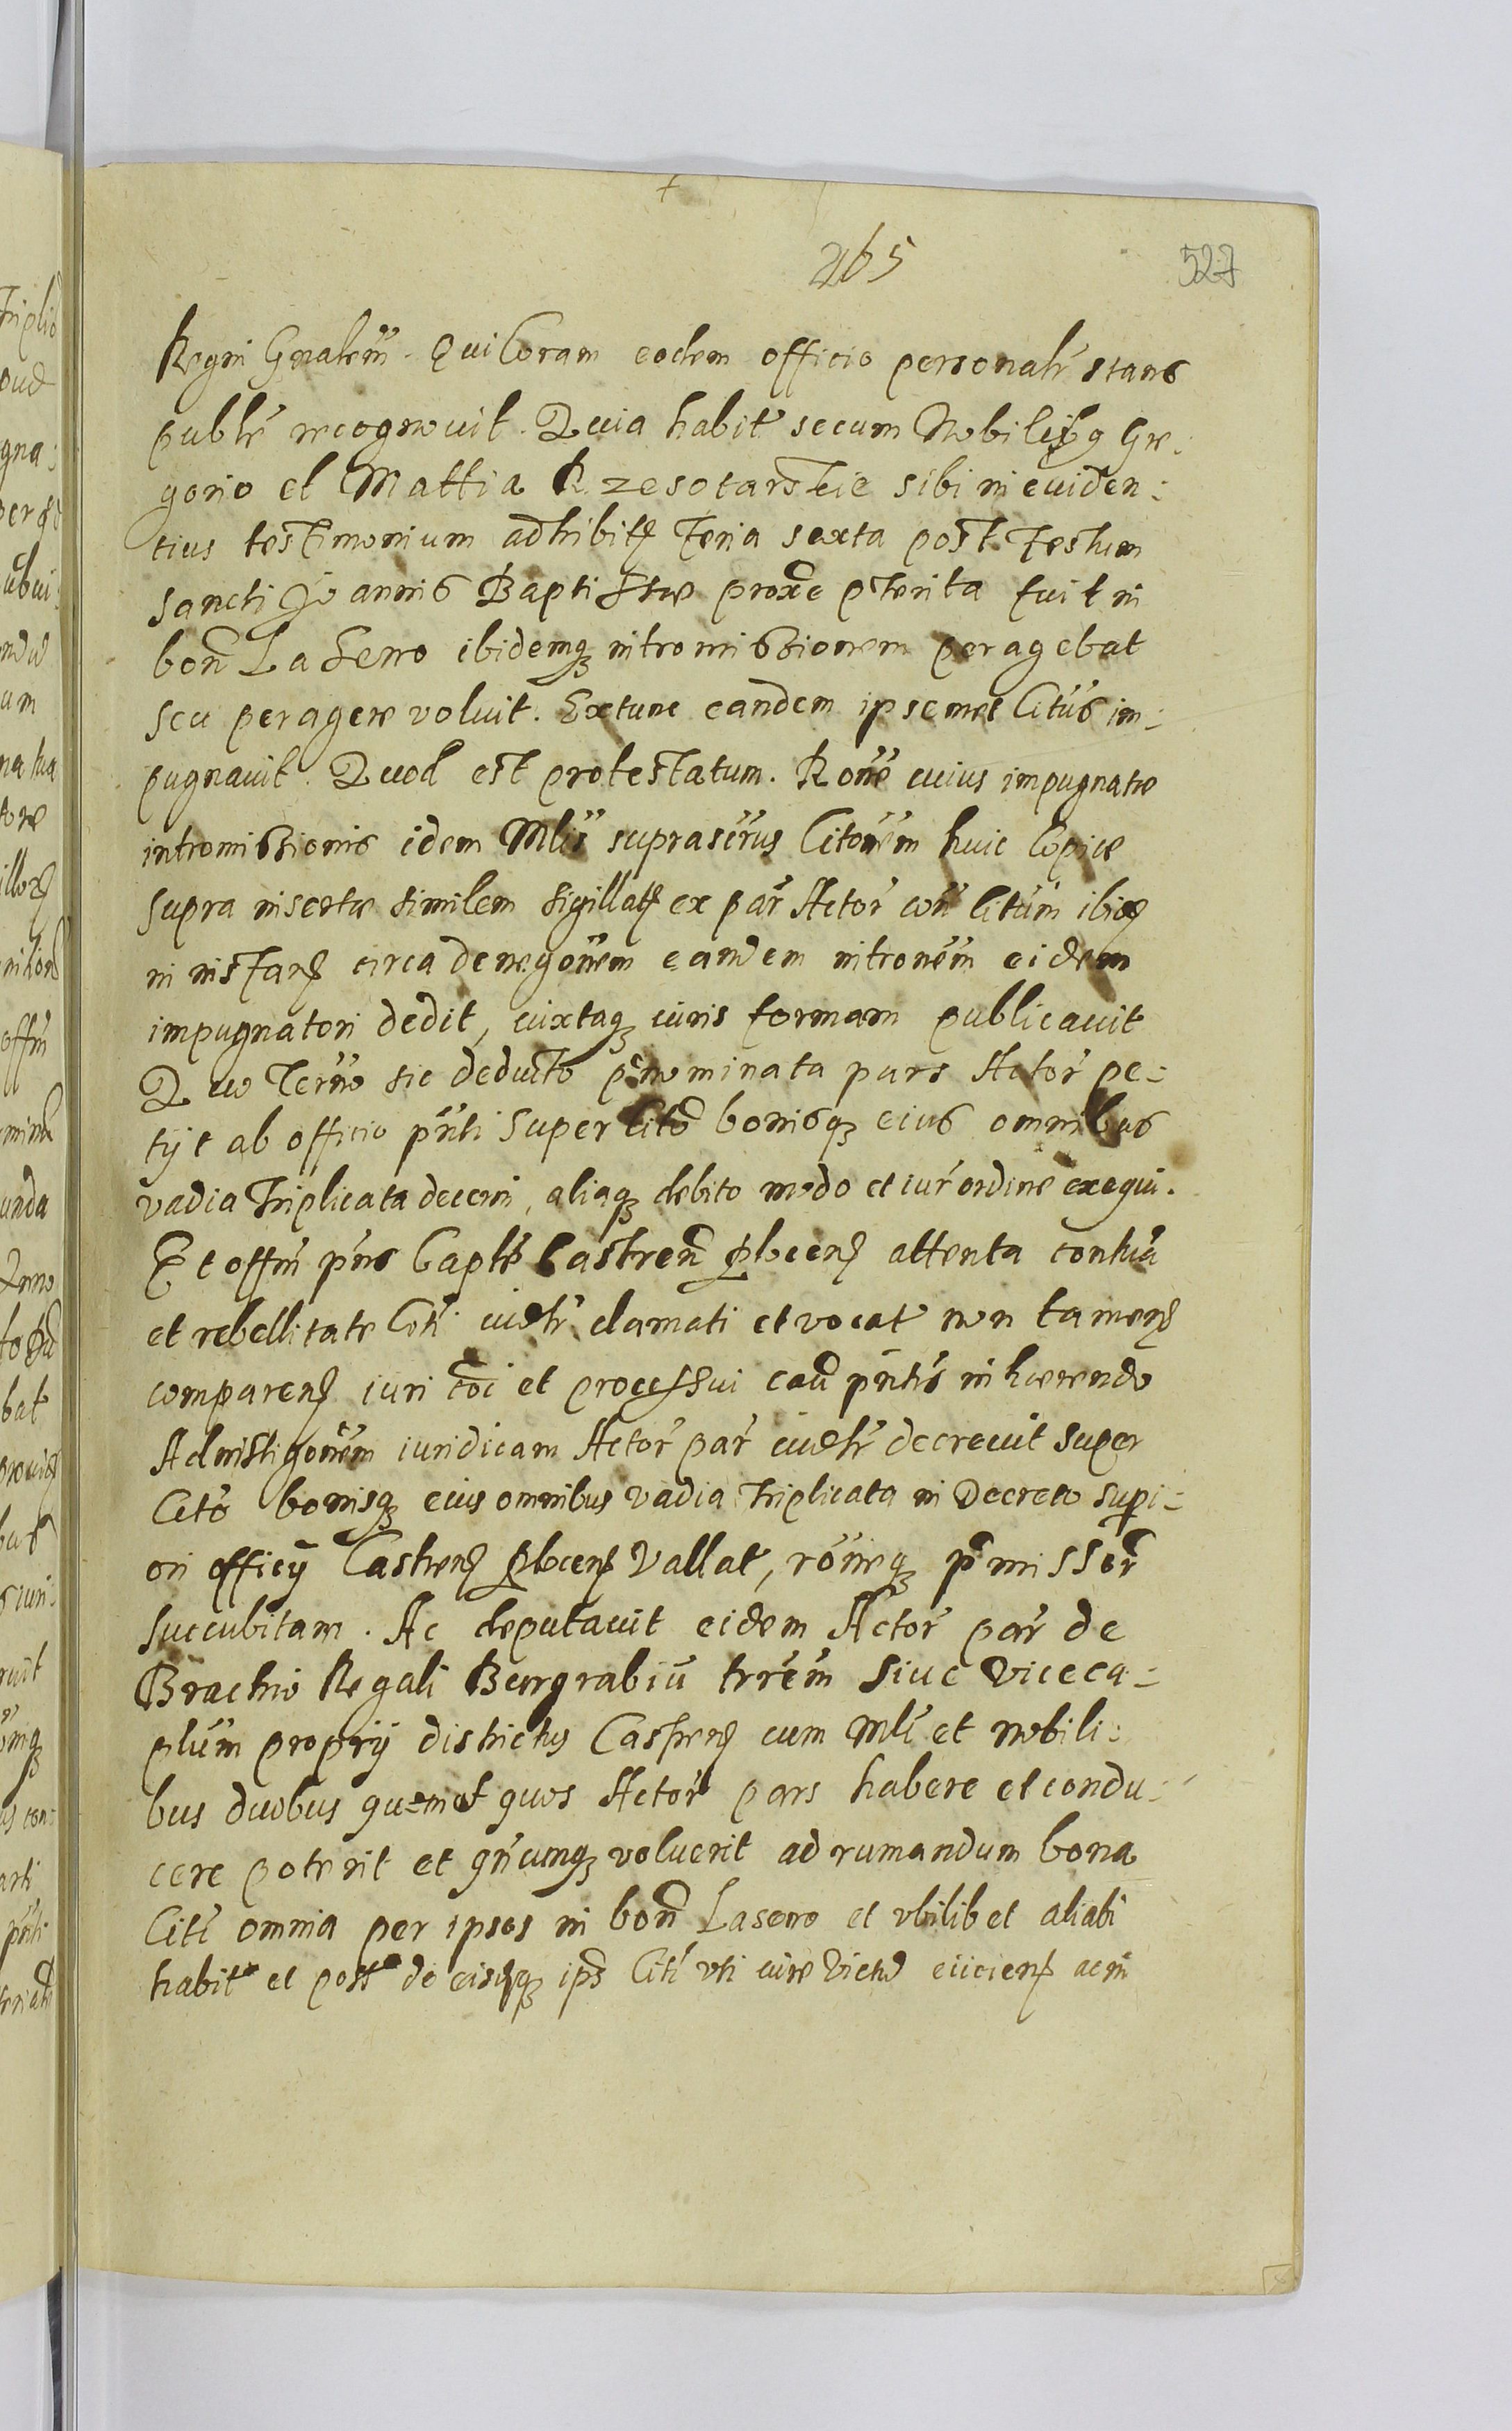 265
527
Regni Gnalem. Qui Coram eodem officio personalr stans
puble recognovit. Quia habit secum Nobilibg Gre:
gorio et Mattia Rzesotarskie sibi in eviden:
tius testimonium adhibitę Feria sexta post Festum
sancti Joannis Baptistæ proxe pterita fuit in
bon Laseno ibidemq intromissionem peragebat
seu peragere voluit. Extunc eandem ipsemet Citus im:
pugnavit. Quod est protestatum. Rone cuius impugnatæ
intromissionis idem Mlis suprascrus Citonem huic Copiæ
supra insertæ similem sigillatę ex par Actor con litum ibidę
in instanę circa denegonem eandem intronem eidem
impugnatori dedit, iuxtaq iuris formam publicavit
Quo Terno sic deducto pnominata pars Actor pe:
tyt ab officio pnti super Cito bonisq eius omnibus
vadia Triplicata decerni, aliaq debito modo et iur ordine exequi.
Et offm pns Captle Castren Plocenę attenta contua
et rebellitate Citi iudlr clamati et vocat non tamenę
comparenę iuri toci et processui cau pntis inhærendo
Ad instigonem iuridicam Actor par iudlr decrevit super
Cito bonisq eius omnibus vadia Triplicata in Decreto supi:
ori officy Castrenę Plocenę Vallat, roneq pmissor
succubitam. Ac deputavit eidem Actor par de
Brachio Regali Burgrabiu trrem sive Viceca:
plum propry districtus Castrenę cum Mli et nobili:
bus duobus quemet quos Actor pars habere et condu:
cere poterit et qncunq voluerit ad rumandum bona
Citi omnia per ipsos in bon Laseno et vbilibet aliabi
habit et post de eisdeq ips Citi vti iure Victu eiicienę ac in